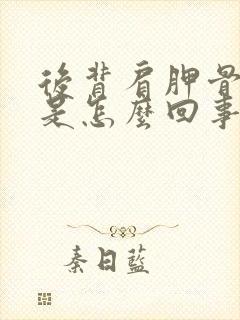 後背肩胛骨
是怎麼回事
秦日藍